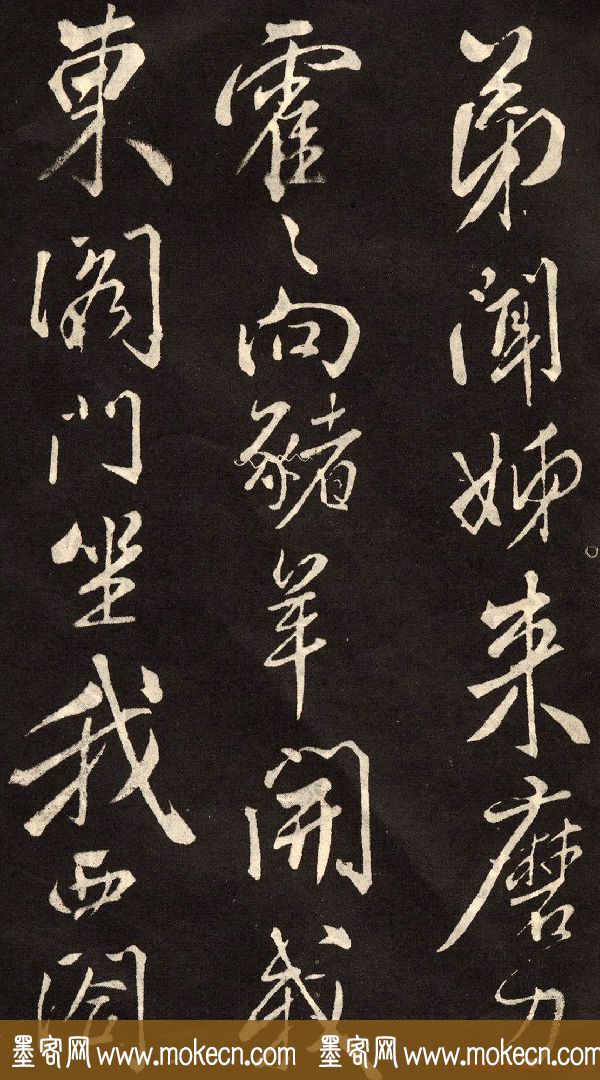 弟聞姊来磨刀
霍〻向豬羊開我
東閣門坐我西閣
墨客网 www.mokecn.com 墨客网 www.mokecn.com